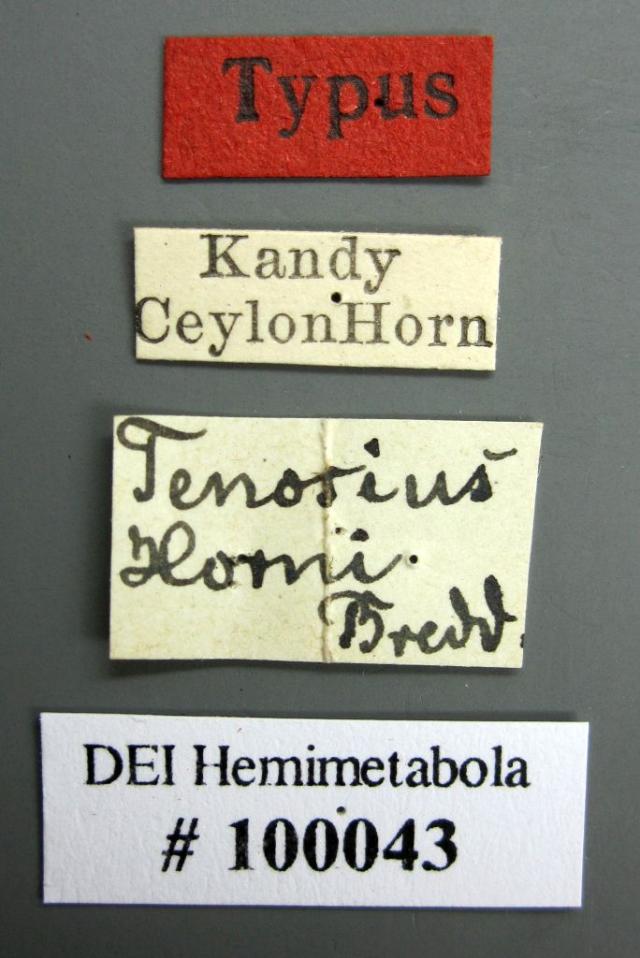 Typus
Kandy
CeylonHorn
Tenosius
Horni
Bredd.
DEI Hemimetabola
# 100043